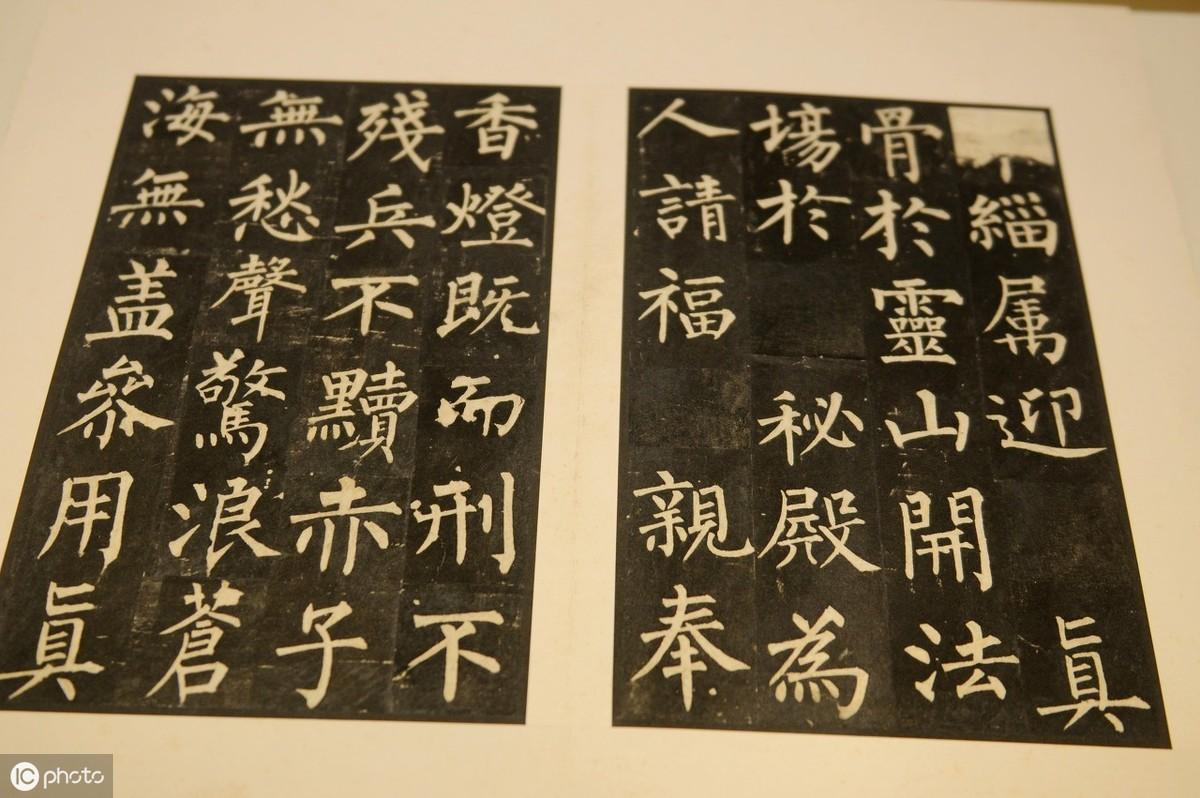 緇属迎 真
骨於靈山開法
場於 秘殿為
人請福 親奉
香燈既而刑不
殘兵不黷赤子
無愁聲驚浪蒼
海無盖參用真
IC photo